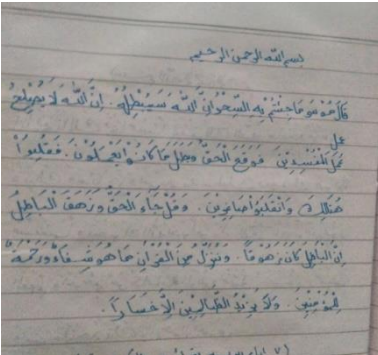 بسم الله الرحمن الرحيم
قَالَ مُوسَى مَا جِئْتُمْ بِهِ السِّحْرُ إِنَّ اللَّهَ سَيُبْطِلُهُ. إِنَّ اللَّهَ لَا يُصْلِحُ
عمل
عَمَلَ الْمُفْسِدِينَ. فَوَقَعَ الْحَقُّ وَبَطَلَ مَا كَانُوا يَعْمَلُونَ. فَغُلِبُوا
هُنَالِكَ وَانْقَلَبُوا صَاغِرِينَ. وَقُلْ جَاءَ الْحَقُّ وَزَهَقَ الْبَاطِلُ
إِنَّ الْبَاطِلَ كَانَ زَهُوقًا. وَنُنَزِّلُ مِنَ الْقُرْآنِ مَا هُوَ شِفَاءٌ وَرَحْمَةٌ
لِلْمُؤْمِنِينَ. وَلَا يَزِيدُ الظَّالِمِينَ إِلَّا خَسَارًا.